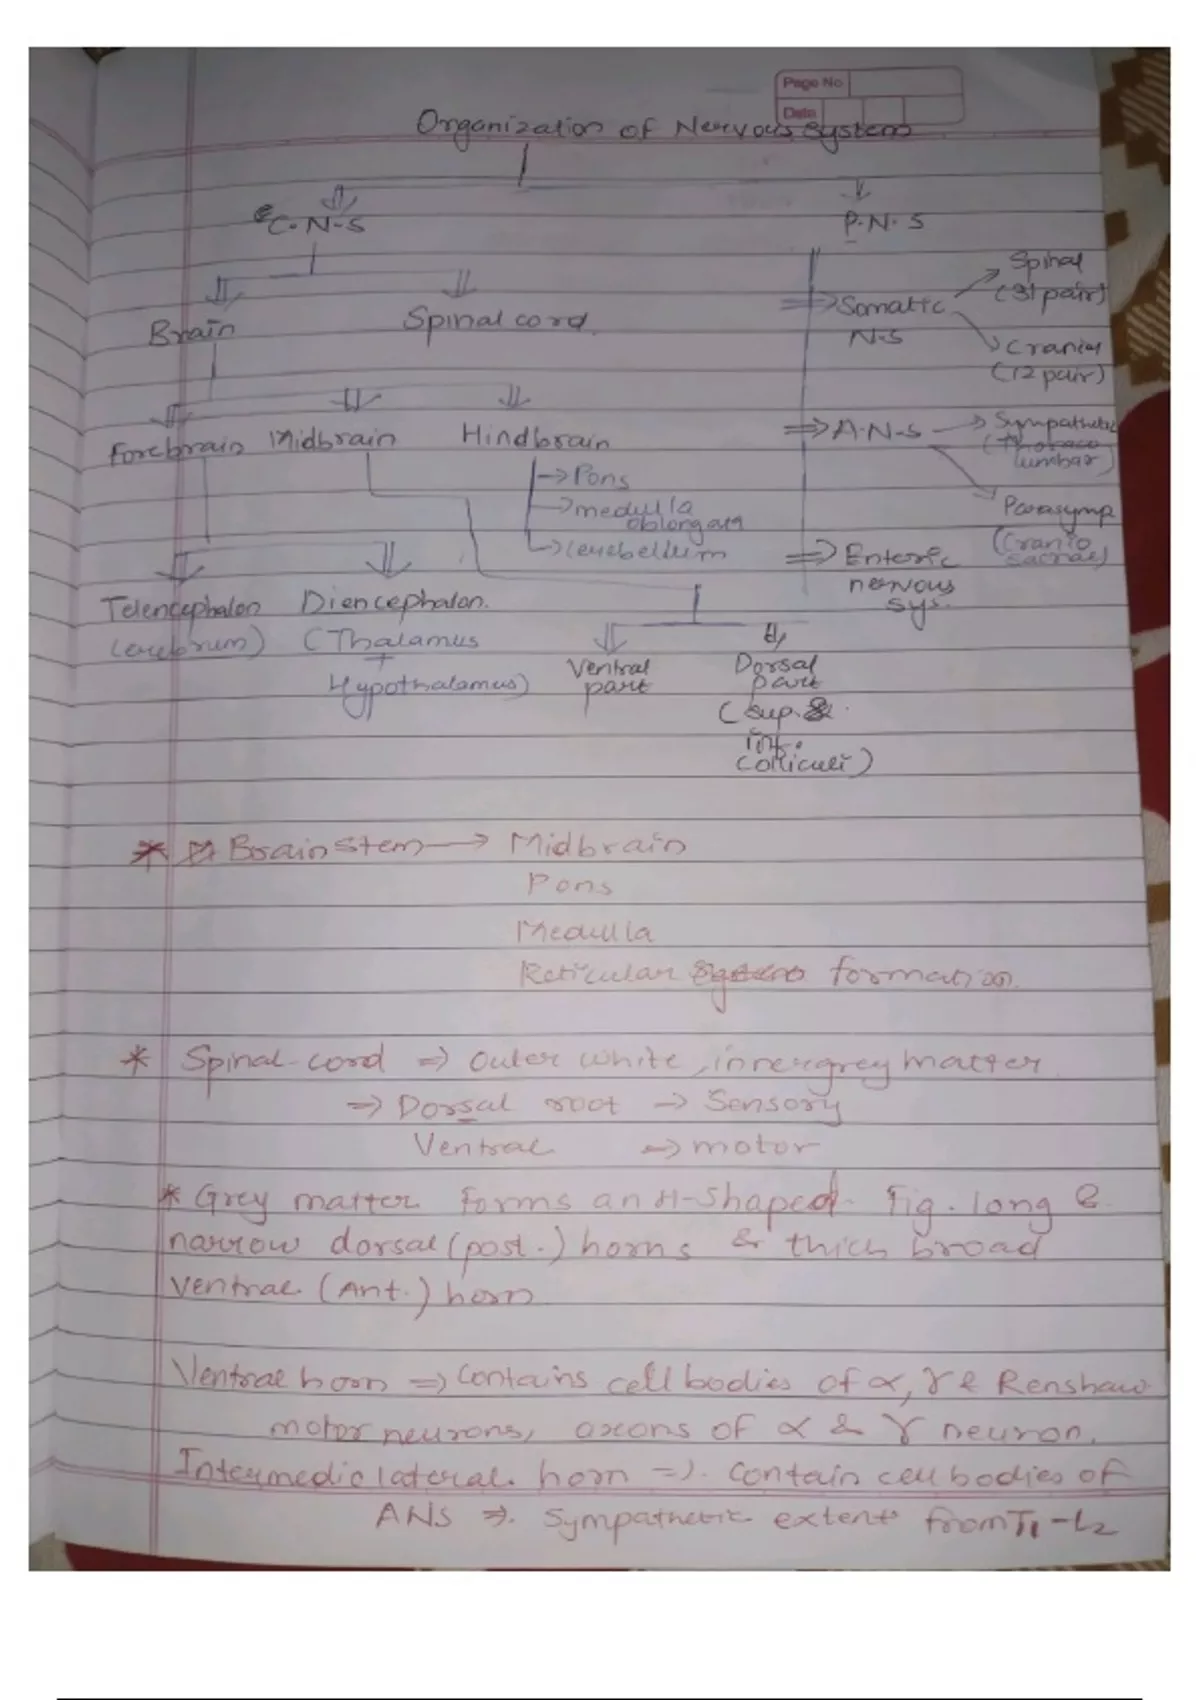 Page No
Date
Organization of Nervous System
C.N.S
P.N.S
Brain
Spinal cord
Somatic N.S
Spinal
(31 pair)
Cranial
(12 pair)
Forebrain
Midbrain
Hindbrain
Pons
medulla
oblongata
Cerebellum
A.N.S
Sympathetic
(Thoraco
lumbar)
Parasymp
(Cranio
sacral)
Enteric
nervous
sys.
Telencephalon
(cerebrum)
Diencephalon.
(Thalamus
+
Hypothalamus)
Ventral
part
Dorsal
part
(sup. &
inf.
colliculi)
* Brain stem → Midbrain
Pons
Medulla
Reticular formation.
* Spinal-cord ⇒ Outer white, inner grey matter
⇒ Dorsal root → Sensory
Ventral → motor
* Grey matter forms an H-shaped fig. long &
narrow dorsal (post.) horns & thick broad
Ventral (Ant.) horn
Ventral horn ⇒ Contains cell bodies of α, γ & Renshaw
motor neurons, axons of α & γ neuron.
Intermediolateral horn ⇒ contain cell bodies of
ANS ⇒ Sympathetic extent from T1-L2